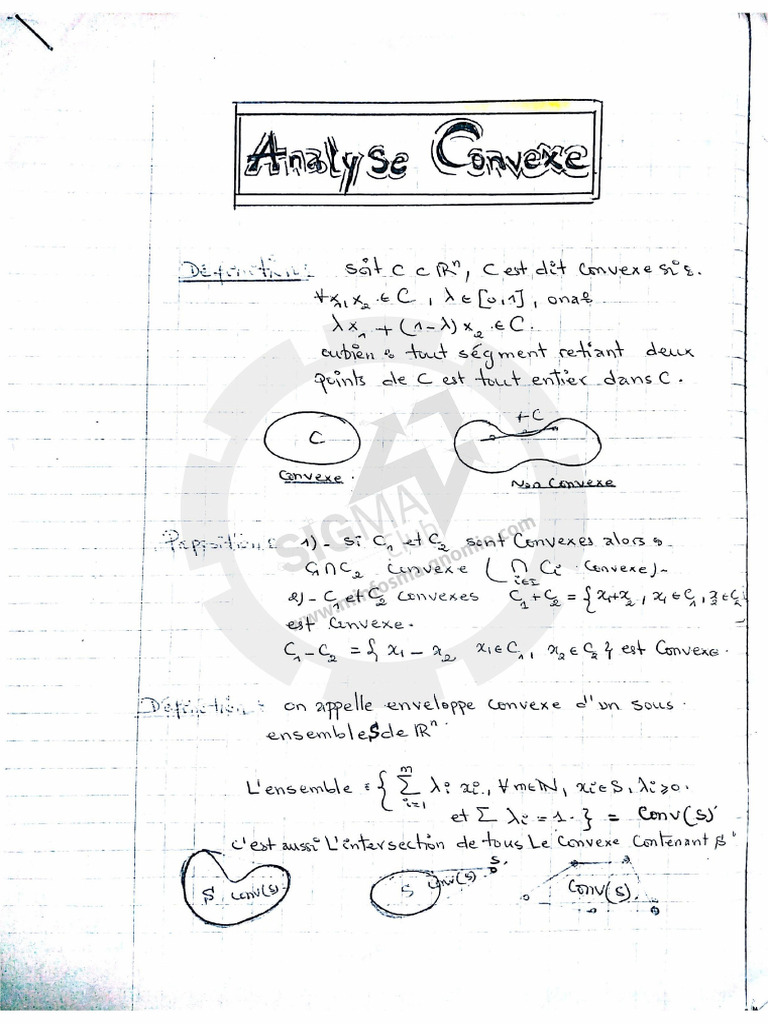 Analyse Convexe
Définition: soit C ⊂ ℝⁿ, C est dit convexe si :
∀x₁,x₂ ∈ C, λ ∈ [0,1], on a :
λx₁ + (1-λ)x₂ ∈ C.
oubien : tout ségment retiant deux
points de C est tout entier dans C.
≠ C
C
Convexe.
Non Convexe
SIGMA
Club
Propositions 1)- si C₁ et C₂ sont convexes alors :
C₁∩C₂ convexe (⋂ Ci convexe)-
i∈I
2)- C₁ et C₂ convexes C₁+C₂ = {x₁+x₂, x₁∈C₁, x₂∈C₂
est Convexe.
C₁-C₂ = { x₁ - x₂ x₁∈C₁, x₂∈C₂} est Convexe.
Définition: on appelle enveloppe convexe d'un sous
ensemble S de ℝⁿ.
L'ensemble : { ∑ᵢ₌₁ᵐ λi xi, ∀m∈ℕ, xi∈S, λi⩾0.
et ∑ λi = 1. } = Conv(S)
C'est aussi L'intersection de tous Le Convexe Contenant S
S Conv(S)
S Conv(S) S.
Conv(S).